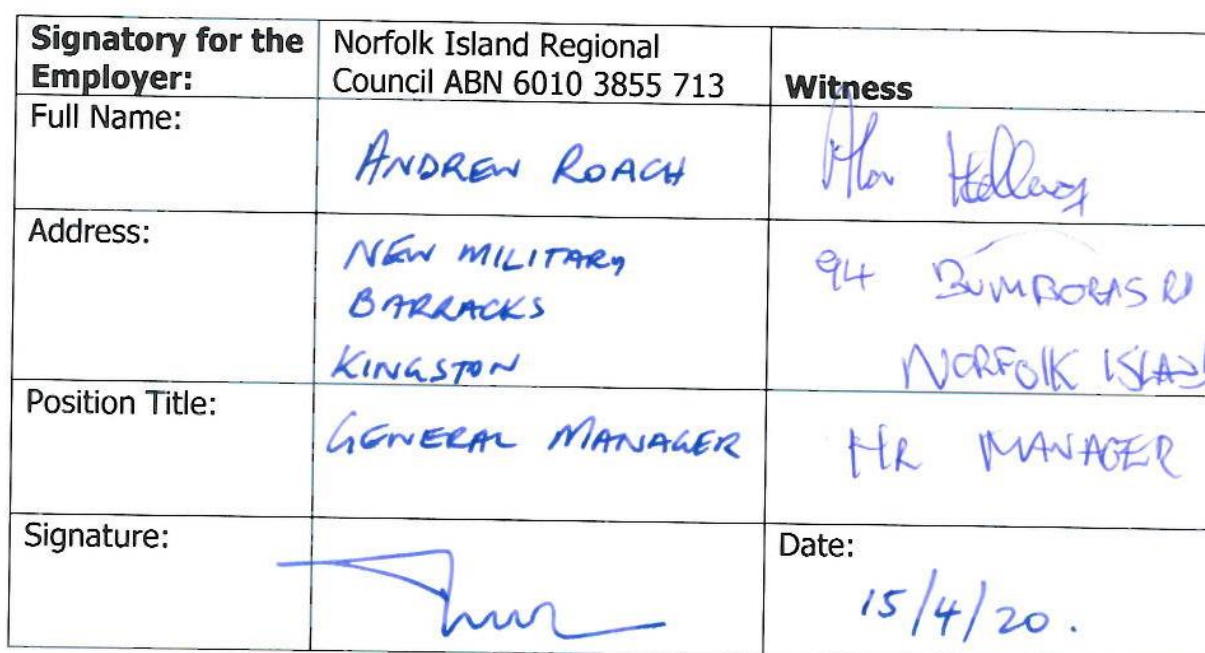 Signatory for the Employer:
Norfolk Island Regional Council ABN 6010 3855 713
Witness
Full Name:
ANDREW ROACH
Address:
NEW MILITARY
BARRACKS
KINGSTON
94 BUMBORAS RD
NORFOLK ISLAND
Position Title:
GENERAL MANAGER
HR MANAGER
Signature:
Date:
15/4/20.